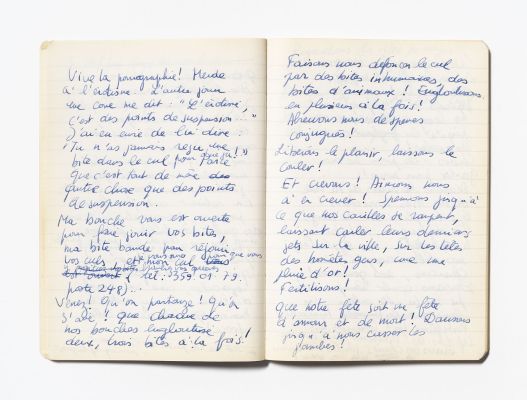 Vive la pornographie! Merde
à l'érotisme. L'autre jour
une conne me dit: "L'érotisme,
c'est des points de suspension..."
J'ai eu envie de lui dire:
"Tu n'as jamais reçu une
bite dans le cul pour dire ça!"
que c'est tout de même
autre chose que des points
de suspension.
Ma bouche vous est ouverte
pour faire jouir vos bites,
ma bite bande pour réjouir
vos culs et mon cul
pour que vous
(tel: 3359.01.79.
poste 248)..
Venez! Qu'on partouze! Qu'on
s'aime! que chacune de
nos bouches engloutisse
deux, trois bites à la fois!
Faisons nous défoncer le cul
par des bites inhumaines, des
bites d'animaux! Engloutissons
en plusieurs à la fois!
Abreuvons nous de spermes
conjugués!
Libérons le plaisir, laissons le
couler!
Et crevons! Aimons nous
à en crever! Spermons jusqu'à
ce que nos couilles se rompent,
laissant couler leurs derniers
jets sur la ville, sur les têtes
des honnêtes gens, comme une
pluie d'or!
Fertilisons!
que notre fête soit une fête
d'amour et de mort! Dansons
jusqu'à nous casser les
jambes!